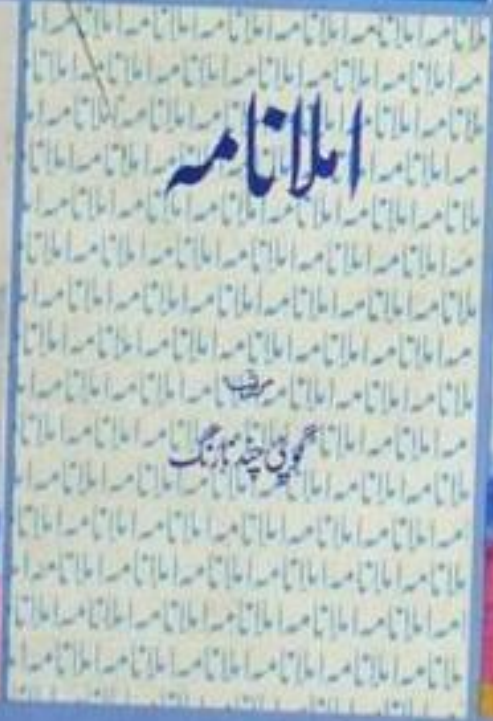 املا نامہ
مرتب
گوپی چند نارنگ